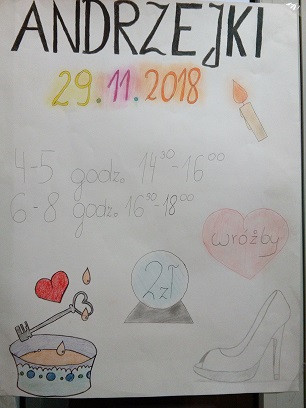 ANDRZEJKI
29.11.2018
4-5 godz. 14³⁰-16⁰⁰
6-8 godz. 16³⁰-18⁰⁰
wróżby
2zł